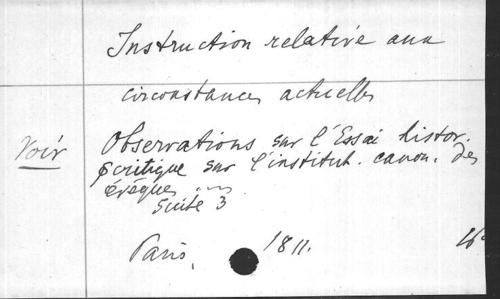 Instruction relative aux
circonstances actuelles
Voir
Observations sur l'Essai histor.
critique sur l'institut. canon. des
évêques
Suite 3
Paris, 1811. 16°